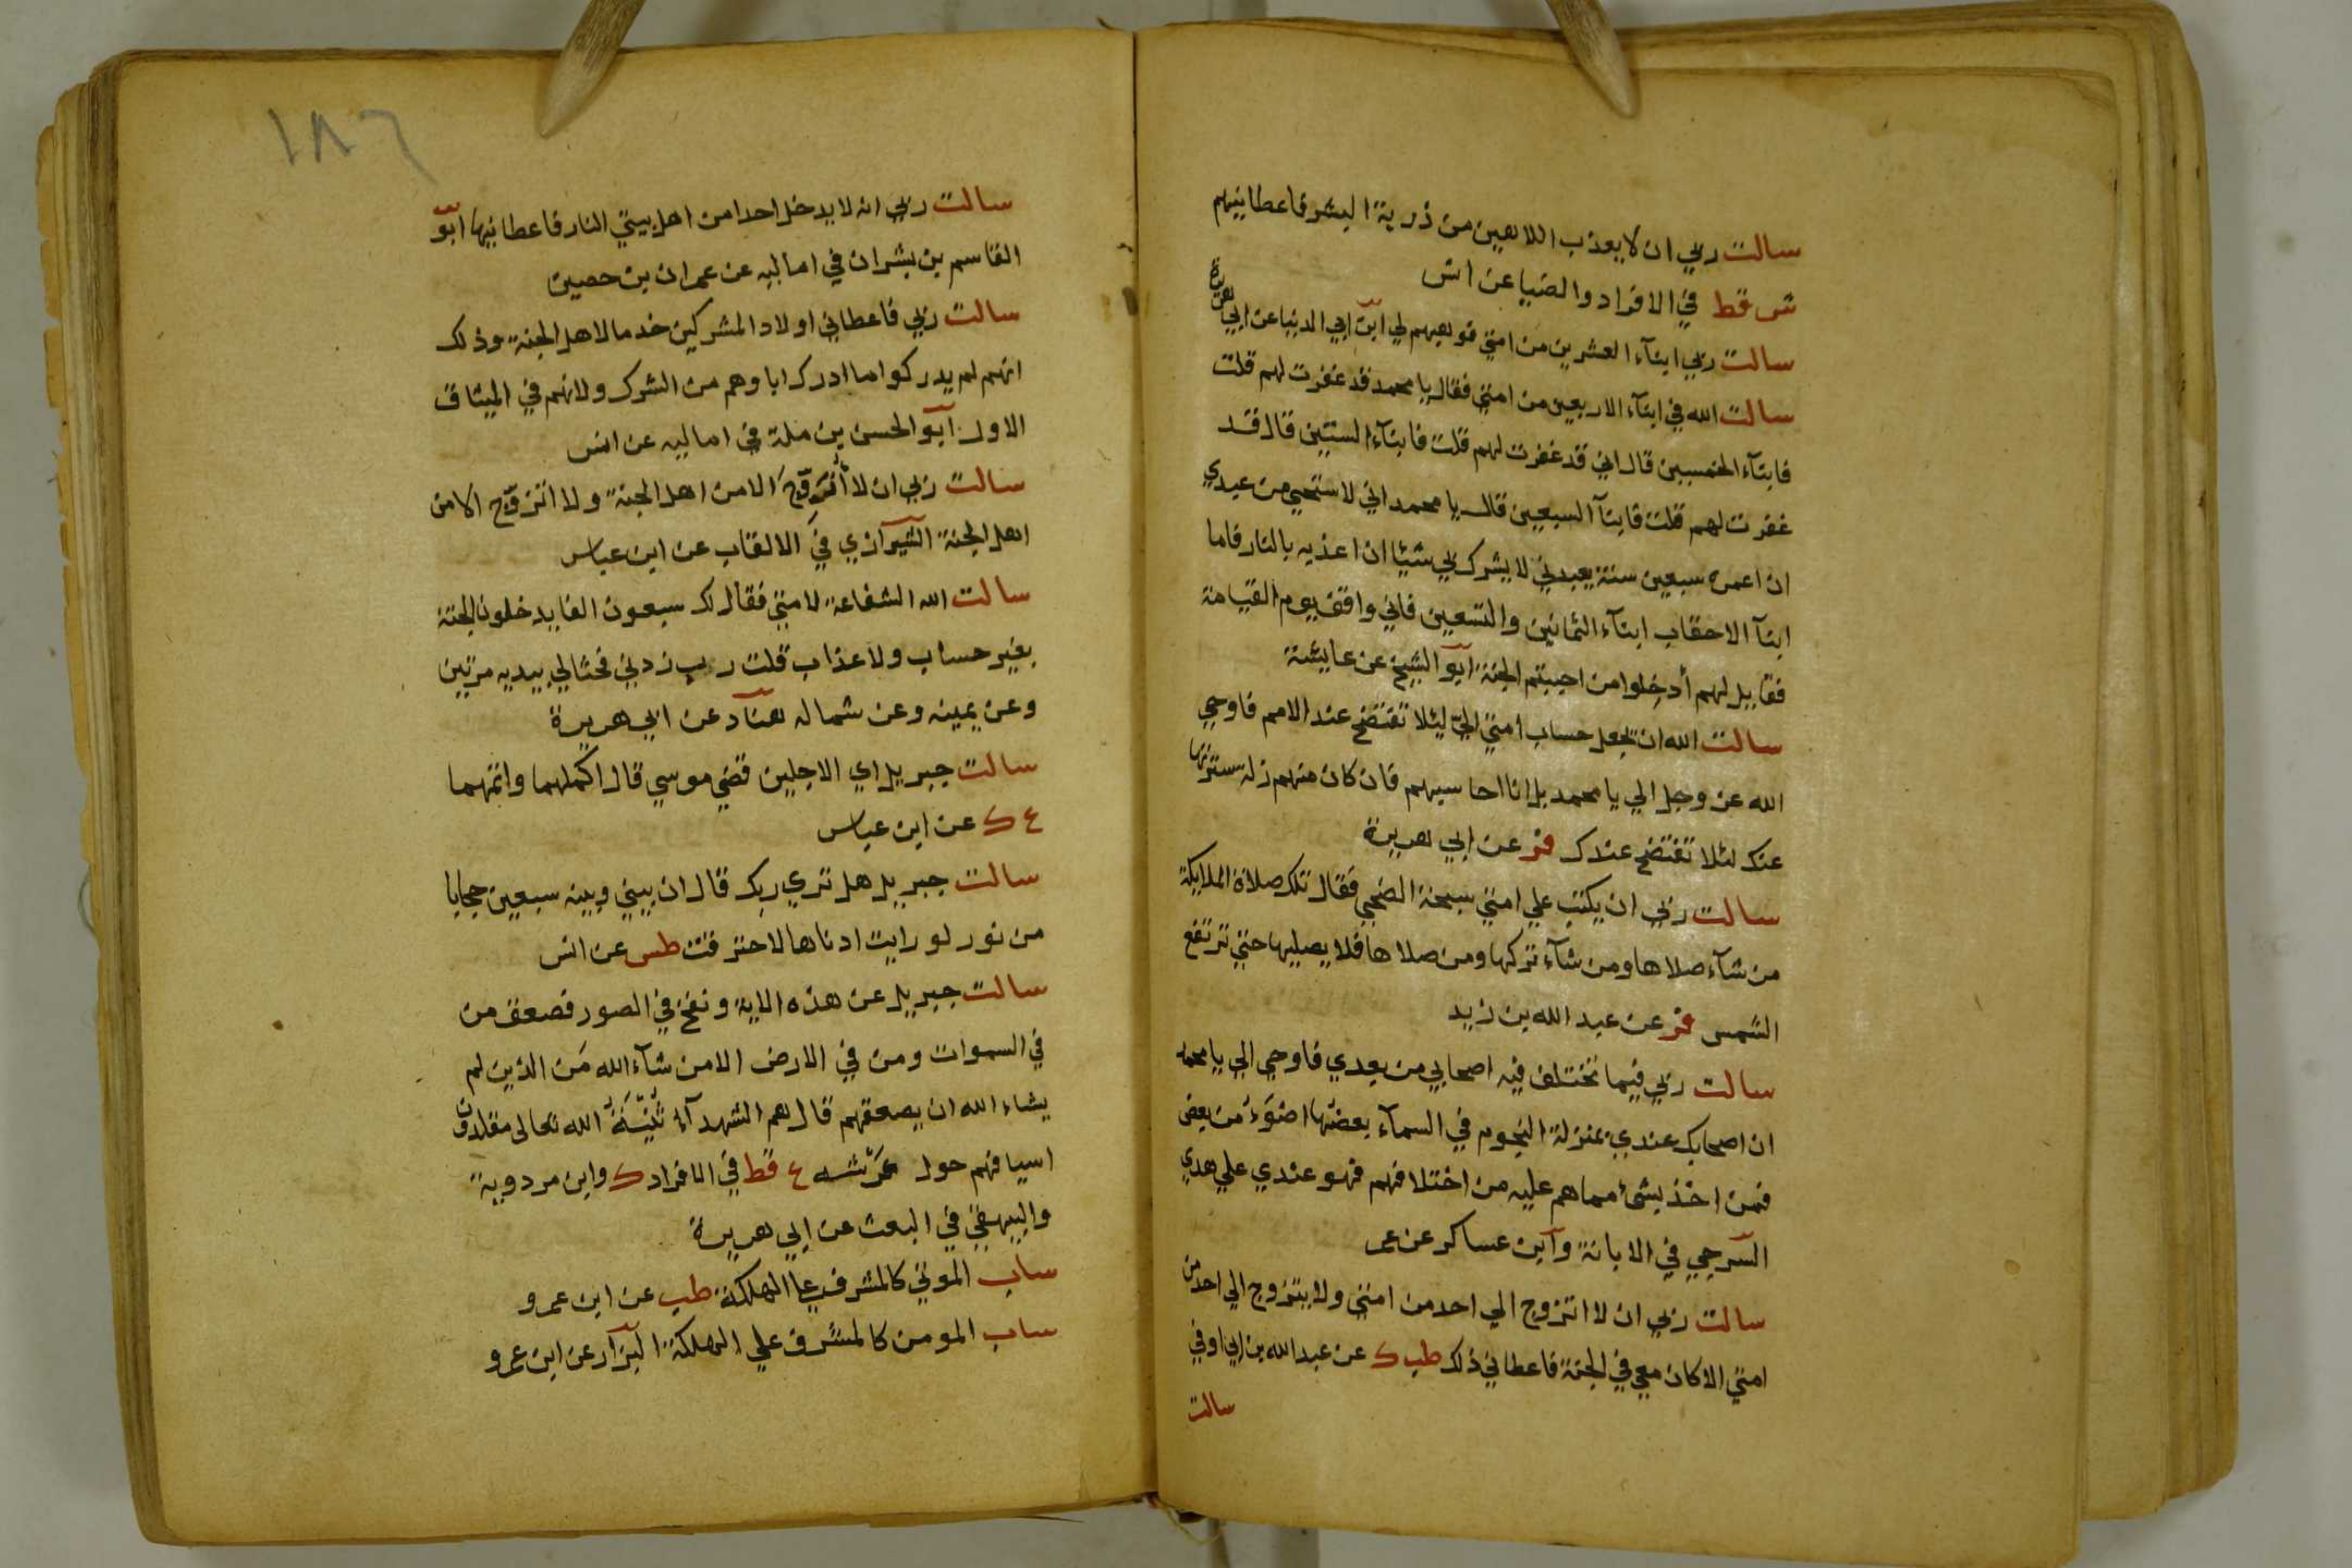 سالت ربي ان لا يعذب اللاهين من ذرية البشر فاعطانيهم
ش قط في الافراد والضيا عن انس
سالت ربي ابنآء العشرين من امتي فوهبهم لي ابن ابي الدنيا عن ابي هريرة
سالت الله في ابنآء الاربعين من امتي فقال يا محمد قد غفرت لهم قلت
فابنآء الخمسين قال اني قد غفرت لهم قلت فابنآء الستين قال قد
غفرت لهم قلت فابنآ السبعين قال يا محمد اني لاستحيي من عبدي
ان اعمره سبعين سنة يعبدني لا يشرك بي شيئا ان اعذبه بالنار فاما
ابنآ الاحقاب ابنآء الثمانين والتسعين فاني واقف يوم القيامة
فقايل لهم أدخلوا من احببتم الجنة ابو الشيخ عن عايشة
سالت الله ان يجعل حساب امتي الي ليلا تفتضح عند الامم فاوحي
الله عز وجل الي يا محمد بل انا احاسبهم فان كان منهم زلة سترتها
عنك لئلا تفتضح عندك فر عن ابي هريرة
سالت ربي ان يكتب علي امتي سبحة الضحي فقال تلك صلاة الملايكة
من شآء صلاها ومن شآء تركها ومن صلاها فلا يصليها حتي ترتفع
الشمس فر عن عبد الله بن زيد
سالت ربي فيما تختلف فيه اصحابي من بعدي فاوحي الي يا محمد
ان اصحابك عندي بمنزلة النجوم في السمآء بعضها اضوء من بعض
فمن اخذ بشئ مما هم عليه من اختلافهم فهو عندي علي هدي
السرجي في الابانة وابن عساكر عن عمر
سالت ربي ان لا اتزوج الي احد من امتي ولا يتزوج الي احد من
امتي الا كان معي في الجنة فاعطاني ذلك طب ك عن عبد الله بن ابي اوفي
سالت
١٨٦
سالت ربي ان لا يدخل احدا من اهل بيتي النار فاعطانيها ابو
القاسم بن بشران في اماليه عن عمران بن حصين
سالت ربي فاعطاني اولاد المشركين خدما لاهل الجنة وذلك
انهم لم يدركوا ما ادرك اباوهم من الشرك ولانهم في الميثاق
الاول ابو الحسن بن ملة في اماليه عن انس
سالت ربي ان لا أزوج الا من اهل الجنة ولا اتزوج الا من
اهل الجنة الشيرازي في الالقاب عن ابن عباس
سالت الله الشفاعة لامتي فقال لك سبعون الفا يدخلون الجنة
بغير حساب ولا عذاب قلت رب زدني فحثا لي بيديه مرتين
وعن يمينه وعن شماله هناد عن ابي هريرة
سالت جبريل اي الاجلين قضي موسي قال اكملهما واتمهما
ع ك عن ابن عباس
سالت جبريل هل تري ربك قال ان بيني وبينه سبعين حجابا
من نور لو رايت ادناها لاحترقت طس عن انس
سالت جبريل عن هذه الاية ونفخ في الصور فصعق من
في السموات ومن في الارض الا من شآء الله من الذين لم
يشاء الله ان يصعقهم قال هم الشهدآء ثنية الله تعالى مقلدون
اسيافهم حول عرشه ع قط في الافراد ك وابن مردوية
والبيهقي في البعث عن ابي هريرة
ساب الموتي كالمشرف علي الهلكة طب عن ابن عمرو
ساب المومن كالمشرف علي الهلكة البزار عن ابن عمرو